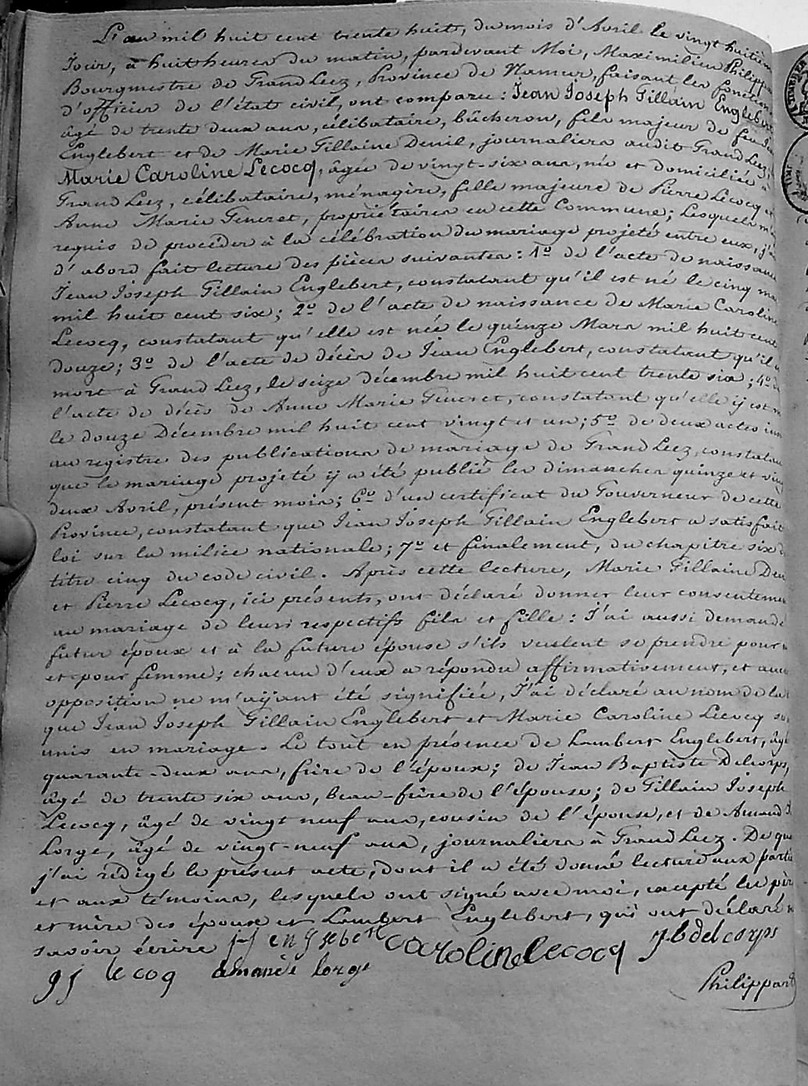 L'an mil huit cent trente huit, du mois d'Avril le vingt huitièm
Jour, à huit heures du matin, pardevant Moi, Maximilien Philipp
Bourgmestre de Grand Leez, Province de Namur, faisant les fonction
d'officier de l'état civil, ont comparu : Jean Joseph Gillain Englebert
âgé de trente deux ans, célibataire, bûcheron, fils majeur de feu Jea
Englebert et de Marie Gillaine Denil, journaliers audit Grand Leez,
Marie Caroline Lecocq, âgée de vingt-six ans, née et domiciliée à
Grand Leez, célibataire, ménagère, fille majeure de Pierre Lecocq et
Anne Marie Généret, propriétaires en cette Commune; Lesquels m'
requis de procéder à la célébration du mariage projeté entre eux, j'ai
d'abord fait lecture des pièces suivantes : 1º de l'acte de naissance
Jean Joseph Gillain Englebert, constatant qu'il est né le cinq ma
mil huit cent six; 2º de l'acte de naissance de Marie Caroline
Lecocq, constatant qu'elle est née le quinze Mars mil huit cent
douze; 3º de l'acte de décès de Jean Englebert, constatant qu'il e
mort à Grand Leez, le seize décembre mil huit cent trente six; 4º d
l'acte de décès de Anne Marie Généret, constatant qu'elle ÿ est m
le douze Décembre mil huit cent vingt et un; 5º de deux actes ins
au registre des publications de mariage de Grand Leez, constatan
que le mariage projeté ÿ a été publié les dimanches quinze et ving
deux Avril, présent mois; 6º d'un certificat du Gouverneur de cette
Province, constatant que Jean Joseph Gillain Englebert a satisfait
loi sur la milice nationale; 7º et finalement, du chapitre six d
titre cinq du code civil. Après cette lecture, Marie Gillaine Den
et Pierre Lecocq, ici présents, ont déclaré donner leur consenteme
au mariage de leurs respectifs fils et fille : J'ai aussi demandé
futur époux et à la future épouse s'ils veulent se prendre pour m
et pour femme; chacun d'eux a répondu affirmativement, et auc
opposition ne m'aÿant été signifiée, J'ai déclaré au nom de la l
que Jean Joseph Gillain Englebert et Marie Caroline Lecocq so
unis en mariage. Le tout en présence de Lambert Englebert, âgé
quarante-deux ans, frère de l'époux; de Jean Baptiste Delcorps,
âgé de trente six ans, beau-frère de l'épouse; de Gillain Joseph
Lecocq, âgé de vingt neuf ans, cousin de l'épouse, et de Amand D
Lorge, âgé de vingt-neuf ans, journaliers à Grand Leez. De quo
j'ai rédigé le présent acte, dont il a été donné lecture aux partie
et aux témoins, lesquels ont signé avec moi, excepté les pèr
et mère des époux et Lambert Englebert, qui ont déclaré n
savoir écrire jj englebert Caroline Lecocq jb delcorps
gj lecoq amande lorge
Philippart